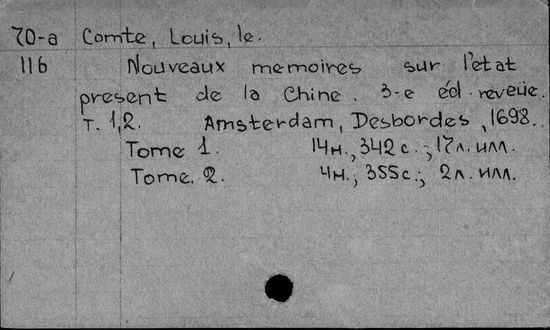 70-a Comte, Louis, le.
116 Nouveaux memoires sur l'etat
present de la Chine. 3-e éd. reveüe.
Т. 1,2. Amsterdam, Desbordes, 1698.
Tome 1. 14н., 342 с.; 17л. илл.
Tome. 2. 4н., 355с.; 2л. илл.